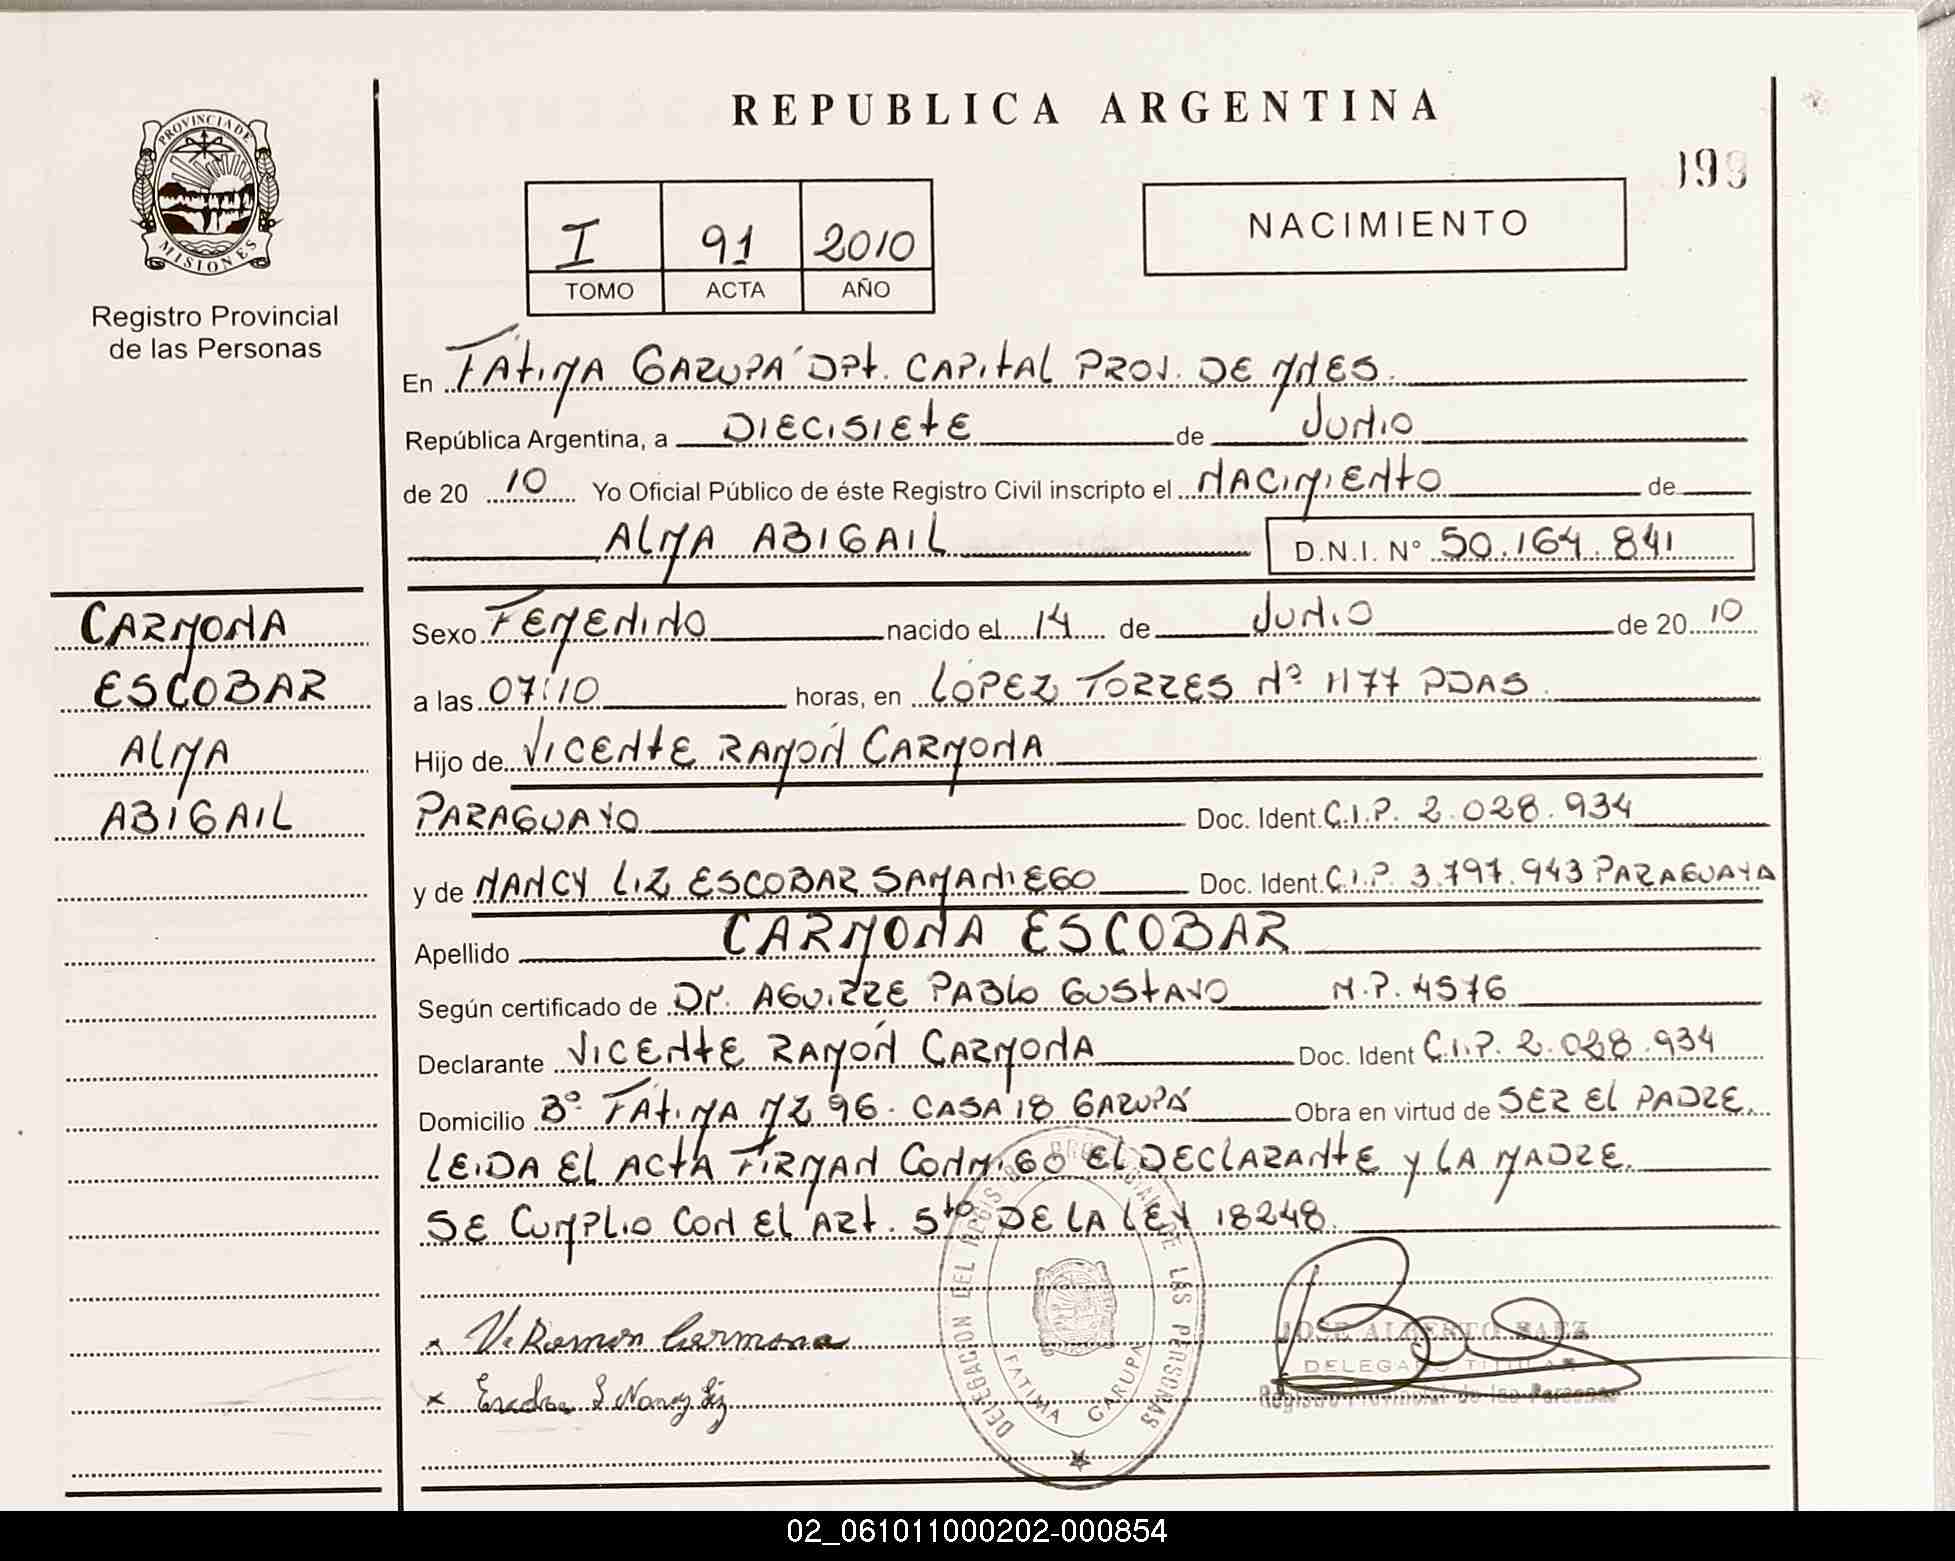 REPUBLICA ARGENTINA
199
PROVINCIA DE
MISIONES
Registro Provincial
de las Personas
I 91 2010
TOMO ACTA AÑO
NACIMIENTO
En FÁTIMA GARUPÁ DPT. CAPITAL PROV. DE MNES.
República Argentina, a DIECISIETE de JUNIO
de 20 10 Yo Oficial Público de éste Registro Civil inscripto el NACIMIENTO de
ALMA ABIGAIL D.N.I. N° 50.164.841
CARMONA
ESCOBAR
ALMA
ABIGAIL
Sexo FEMENINO nacido el 14 de JUNIO de 20 10
a las 07:10 horas, en LÓPEZ TORRES Nº 1177 PDAS.
Hijo de VICENTE RAMÓN CARMONA
PARAGUAYO Doc. Ident. C.I.P. 2.028.934
y de NANCY LIZ ESCOBAR SAMANIEGO Doc. Ident. C.I.P. 3.797.943 PARAGUAYA
Apellido CARMONA ESCOBAR
Según certificado de Dr. AGUIRRE PABLO GUSTAVO M.P. 4576
Declarante VICENTE RAMÓN CARMONA Doc. Ident C.I.P. 2.028.934
Domicilio Bº FÁTIMA MZ 96. CASA 18 GARUPÁ Obra en virtud de SER EL PADRE.
LEIDA EL ACTA FIRMAN CONMIGO EL DECLARANTE Y LA MADRE.
SE CUMPLIO CON EL ART. 5to DE LA LEY 18248.
x V. Ramon Carmona
x Nancy Liz
DELEGACION DEL REGISTRO PROVINCIAL DE LAS PERSONAS
FATIMA GARUPA
JOSE ALBERTO BAEZ
DELEGADO TITULAR
Registro Provincial de las Personas
02_061011000202-000854